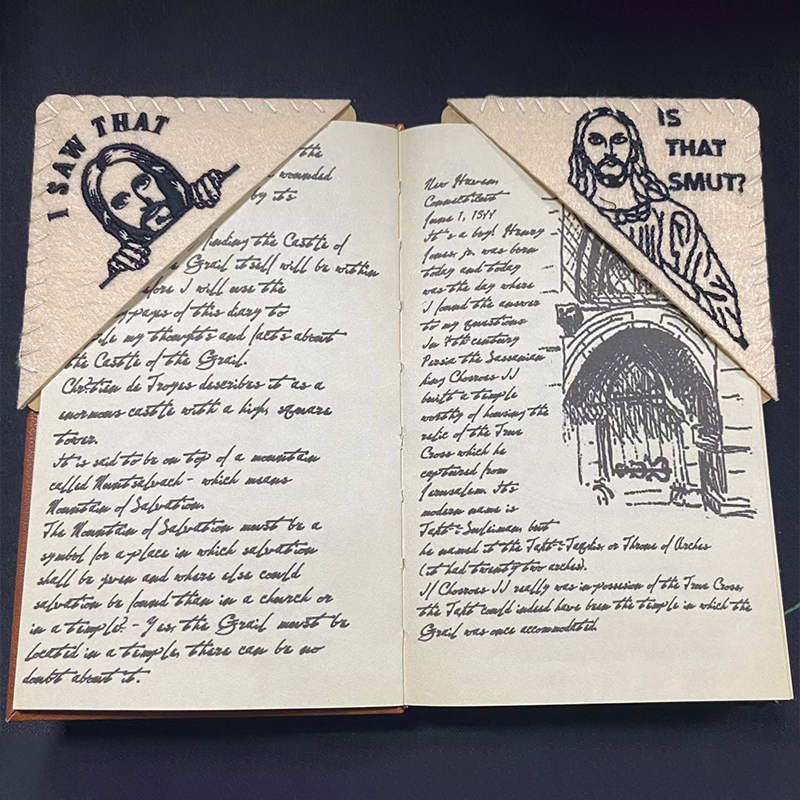 I SAW THAT
the
wounded
by it's
finding the Castle of
Grail itself will be within
I will use the
pages of this diary to
my thoughts and facts about
the Castle of the Grail.
Chrétien de Troyes describes it as a
enormous castle with a high, square
tower.
It is said to be on top of a mountain
called Muntsalvach - which means
Mountain of Salvation.
The Mountain of Salvation must be a
symbol for a place in which salvation
shall be given and where else could
salvation be found than in a church or
in a temple? - Yes, the Grail must be
located in a temple, there can be no
doubt about it.
IS
THAT
SMUT?
New Haven,
Connecticut
June 1, 1899
It's a boy! Henry
Jones, jr. was born
today and today
was the day where
I found the answer
to my questions
In 7th century
Persia the Sassanian
king Chosroes II
built a temple
worthy of housing the
relic of the True
Cross which he
captured from
Jerusalem. It's
modern name is
Takt-i-Suleiman, but
he named it the Takt-i-Taqdis, or Throne of Arches
(it had twenty two arches).
If Chosroes II really was in possesion of the True Cross,
the Takt could indeed have been the temple in which the
Grail was once accommodated.